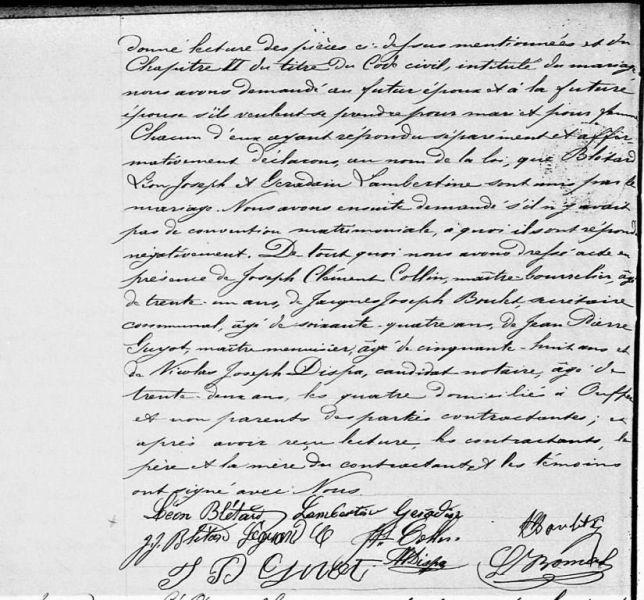 donné lecture des pièces ci-dessus mentionnées et du
Chapitre VI du titre du Code civil, intitulé du mariage,
nous avons demandé au futur époux et à la future
épouse s'ils veulent se prendre pour mari et pour femme
Chacun d'eux ayant répondu séparément et affir
mativement déclarons, au nom de la loi, que Blétard
Léon Joseph et Geradin Lambertine sont unis par le
mariage. Nous avons ensuite demandé s'il n'y avait
pas de convention matrimoniale, à quoi ils ont répondu
négativement. De tout quoi nous avons dressé acte en
présence de Joseph Clément Collin, maître-bourrelier, âgé
de trente-un ans, de Jacques Joseph Boulet secrétaire
communal, âgé de soixante-quatre ans, de Jean Pierre
Guyot, maître menuisier, âgé de cinquante-huit ans et
de Nicolas Joseph Dispa, candidat notaire, âgé de
trente-deux ans, les quatre domicilié à Ouffet
et non parents des parties contractantes; et
après avoir reçu lecture, les contractants, le
père et la mère du contractant et les témoins
ont signé avec Nous.
Léon Blétard Lambertine Geradin
J J Blétard Légrand C Dispa
J P Guyot